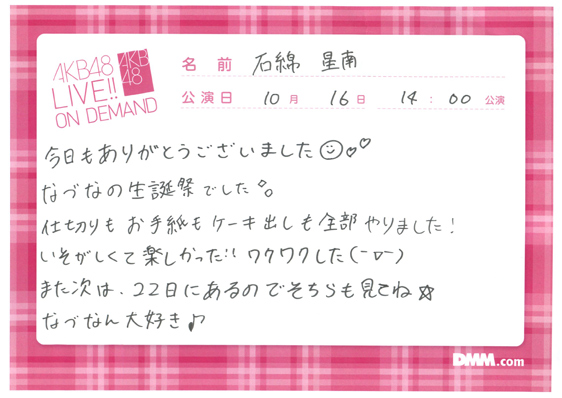 AKB48
LIVE!!
ON DEMAND
AKB
48
名前 石綿 星南
公演日 10月 16日 14:00 公演
今日もありがとうございました☺♡♡
なづなの生誕祭でした
仕切りもお手紙もケーキ出しも全部やりました!
いそがしくて楽しかった!!ワクワクした(ー▽ー)
また次は、22日にあるのでそちらも見てね☆
なづなん大好き♪
DMM.com